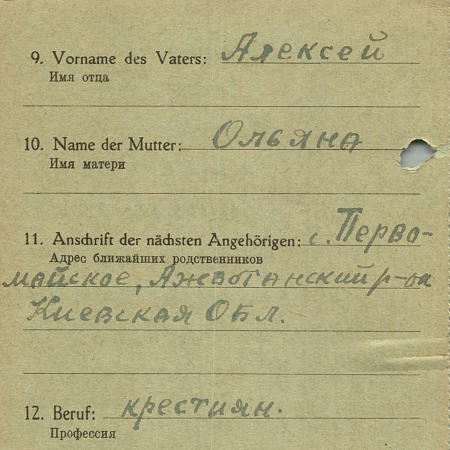 9. Vorname des Vaters: Алексей
Имя отца
10. Name der Mutter: Ольяна
Имя матери
11. Anschrift der nächsten Angehörigen: с. Перво-
Адрес ближайших родственников
майское, р-на
Киевская Обл.
12. Beruf: крестиян.
Профессия